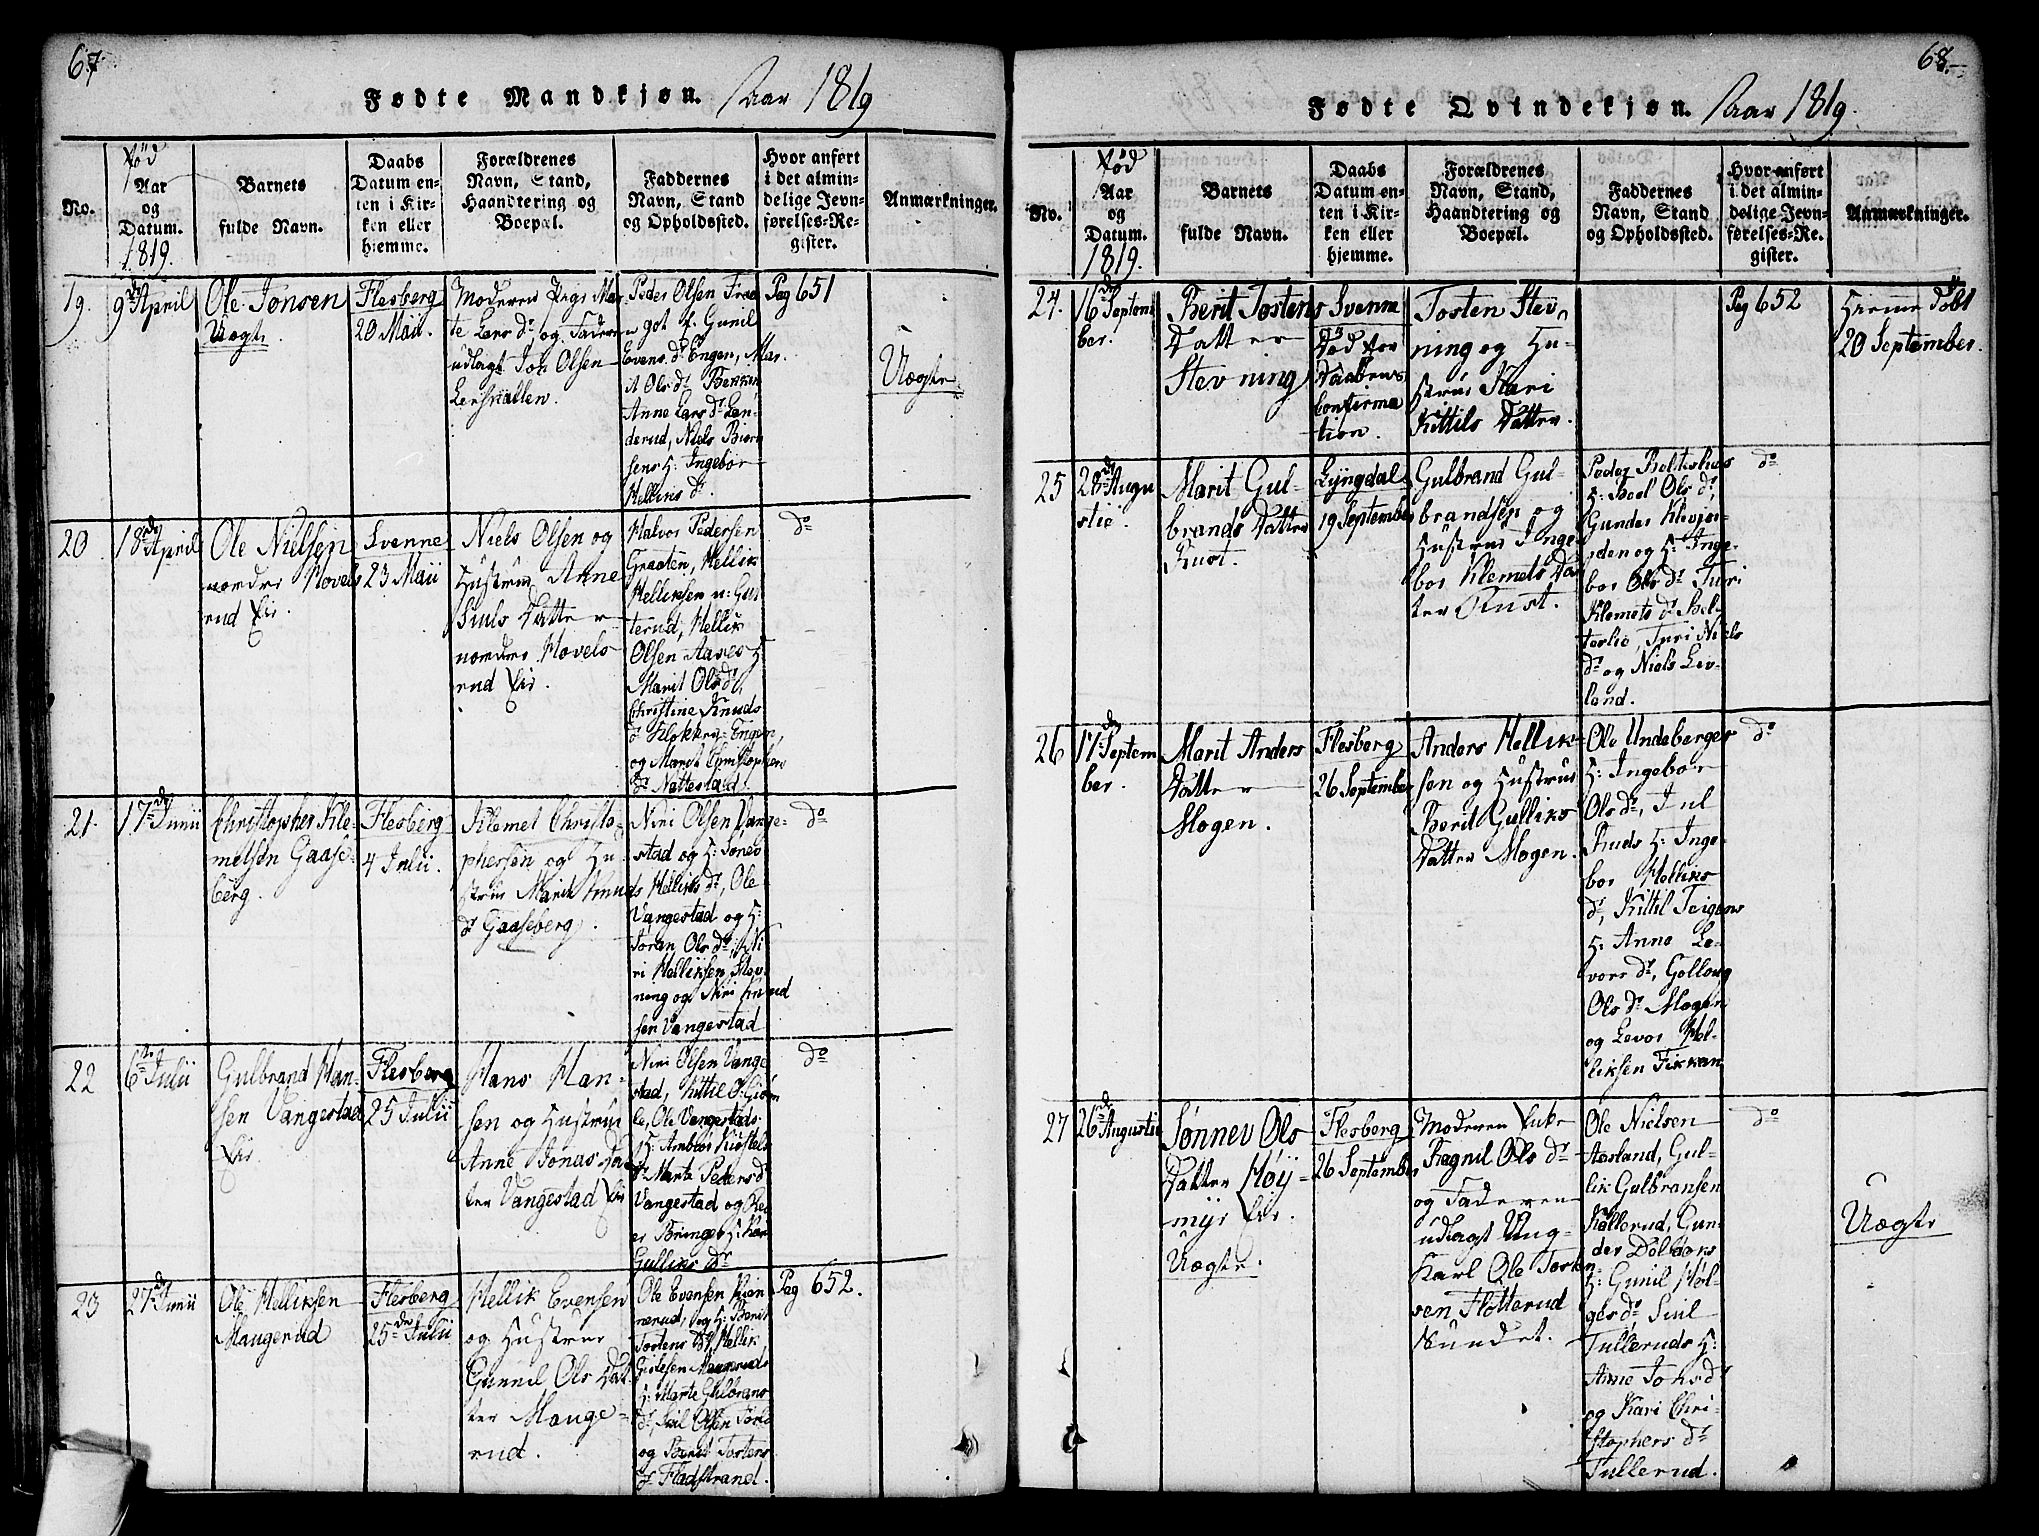 67.
Fødte Mandkjøn. Aar 1819
No.
Fød
Aar
og
Datum.
1819.
Barnets
fulde Navn.
Daabs
Datum en-
ten i Kir-
ken eller
hjemme.
Forældrenes
Navn, Stand,
Haandtering og
Boepæl.
Faddernes
Navn, Stand
og Opholdssted.
Hvor anført
i det almin-
delige Jevn-
førelses-Re-
gister.
Anmærkninger.
19.
9de April
Ole Jonsen
Uægte.
Flesberg
20 Maii.
Moderen Pige Mar-
te Lars Dr. og Faderen
udlagt Jon Olsen
Lershallen.
Peder Olsen
got f. Gunil
Evens Dr. Engen, Mar-
it Ols Dr. Bekken
Anne Lars Dr. Lan-
derud, Niels Biørn
sens H: Ingebor
Helliks Dr.
Pag 651
Uægte.
20
18de April
Ole Nielsen
nordre Hovels
rud Eir.
Svenne
23 Maii
Niels Olsen og
Hustrue Anne
Siuls Datter
nordre Hovels
rud Eir.
Halvor Pedersen
Graaten, Hellik
Helliksen n: Gul
terud, Hellik
Olsen Aases H
Marit Ols Dr.
Christine Knuds
Dr. Klokker-Engen,
og Marit Christophers
Dr. Nattestad.
do
21.
17de Junii
Christopher Kle-
metsen Gaase-
berg.
Flesberg
4 Julii.
Klemet Christo-
phersen og Hu-
strue Marit Knuds
Dr. Gaaseberg.
Niri Olsen Vange-
stad og H: Sønev
Helliks Dr., Ole
Vangestad og H:
Joran Ols Dr., Ni
ri Helliksen, Stev
ning og Niri Knud
sen Vangestad
do
22
6te Julii
Gulbrand Han-
sen Vangestad
Eir.
Flesberg
25 Julii
Hans Han-
sen og Hustrue
Anne Jonas Dat
ter Vangestad Eir
Niri Olsen Vange
stad, Kittil O: Giøn
le, Ole Vangestads
H: Ambior Kiøstels
Dr. Marte Peders Dr.
Vangestad og Re
er Bringe H: Kari
Gulliks Dr.
do
23
27de Junii
Ole Helliksen
Maugerud
Flesberg
25de Julii
Hellik Evensen
og Hustrue
Gunnil Ols Dat
ter Mauge-
rud.
Ole Evensen
nerud, og H: Berit
Tostens Dr., Hellik
Gislesen Maugeruds
H: Marte Gulbrans
Dr., Siul Olsen
og Berit Tostens
Dr. Fladstrand.
Pag 652.
68.
Fødte Qvindekjøn. Aar 1819.
No.
Fød
Aar
og
Datum.
1819.
Barnets
fulde Navn.
Daabs
Datum en-
ten i Kir-
ken eller
hjemme.
Forældrenes
Navn, Stand,
Haandtering og
Boepæl.
Faddernes
Navn, Stand
og Opholdssted.
Hvor anført
i det almin-
delige Jevn-
førelses-Re-
gister.
Anmærkninger.
24.
16de Septem
ber.
Berit Tostens
Datter
Stevning
Svenne
Død for
Daabens
Confirma
tion.
Tosten Stev-
ning og Hu-
strue Kari
Kittils Datter.
Pag 652
Hiemme Døbt
20 September.
25
28de Augu
stii.
Marit Gul-
brands Datter
Rust.
Lyngdal
19 September
Gulbrand Gul-
brandsen og
Hustrue Inge-
bor Klemets Dat
ter Rust.
Peder
H: Ols Dr.,
Gunder
og H: Inge-
bor Ols Dr. Turi
Klemets Dr.
Turi Niels
Dr. og Niels Liv-
land.
do
26
17de Septem
ber.
Marit Anders
Datter
Mogen.
Flesberg
26 September
Anders Hellik-
sen og Hustrue
Berit Gulliks
Datter Mogen.
Ole Undeberget
H: Ingebor
Ols Dr., Juul
Ruds H: Inge-
bor Helliks
Dr., Kittil Teigens
H: Anne Le-
vors Dr., Gollaug
Ols Dr. Mogen
og Levor Hel-
liksen Fikkan
do
27
26de Augustii
Sønnev Ols
Datter Høij-
myr Eir.
Uægte.
Flesberg
26 September
Moderen Enke
Ragnil Ols Dr.
og Faderen
udlagt Ung-
Karl Ole Torsten
sen Flotterud
Sundet.
Ole Nielsen
Aasland, Gul-
lik Gulbransen
Kallerud, Gun-
der Dølbaks
H: Gunil Høl-
ges Dr. Siul
Tulleruds H:
Anne Johs Dr.
og Kari Chri-
stophers Dr.
Tullerud.
do
Uægte